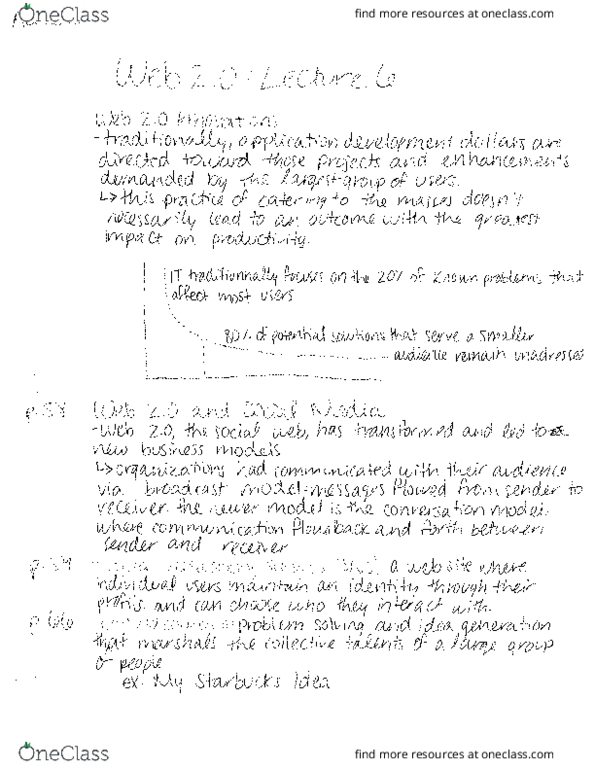 OneClass
find more resources at oneclass.com
Web 2.0: Lecture 6
Web 2.0
- traditionally, application development dollars are
directed toward those projects and enhancements
demanded by the largest group of users.
↳ this practice of catering to the masses doesn't
necessarily lead to an outcome with the greatest
impact on productivity.
IT traditionally focuses on the 20% of known problems that
affect most users
80% of potential solutions that serve a smaller
audience remain unadresses
Web 2.0 and Social Media
- Web 2.0, the social web, has transformed and led to
new business models
↳ organizations had communicated with their audience
via broadcast model- messages flowed from sender to
receiver. the newer model is the conversation model,
where communication flows back and forth between
sender and receiver
a website where
individual users maintain an identity through their
profils and can choose who they interact with.
p.66 problem solving and idea generation
that marshals the collective talents of a large group
of people
ex. My Starbucks Idea
OneClass
find more resources at oneclass.com